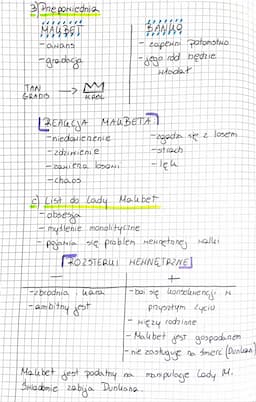 3) Przepowiednia
MAKBET
BANKO
- awans
- gradacja
- zapewni potomstwo
- jego ród będzie
władał
TAN
GLAMIS
→
KRÓL
REAKCJA MAKBETA
- niedowierzenie
- zdziwienie
- zawierza losowi
- chaos
- zgadza się z losem
- strach
- lęk
c) List do Lady Makbet
- obsesja
- myślenie monolityczne
- pojawia się problem wewnętrznej walki
ROZSTERKI WEWNĘTRZNE
-
+
- zbrodnia kara
- ambitny jest
- boi się konsekwencji w
przyszłym życiu
- więzy rodzinne
- Makbet jest gospodarzem
- nie zasługuje na śmierć (Dunkan)
Makbet jest podatny na manipulacje Lady M.
Świadomie zabija Dunkana.